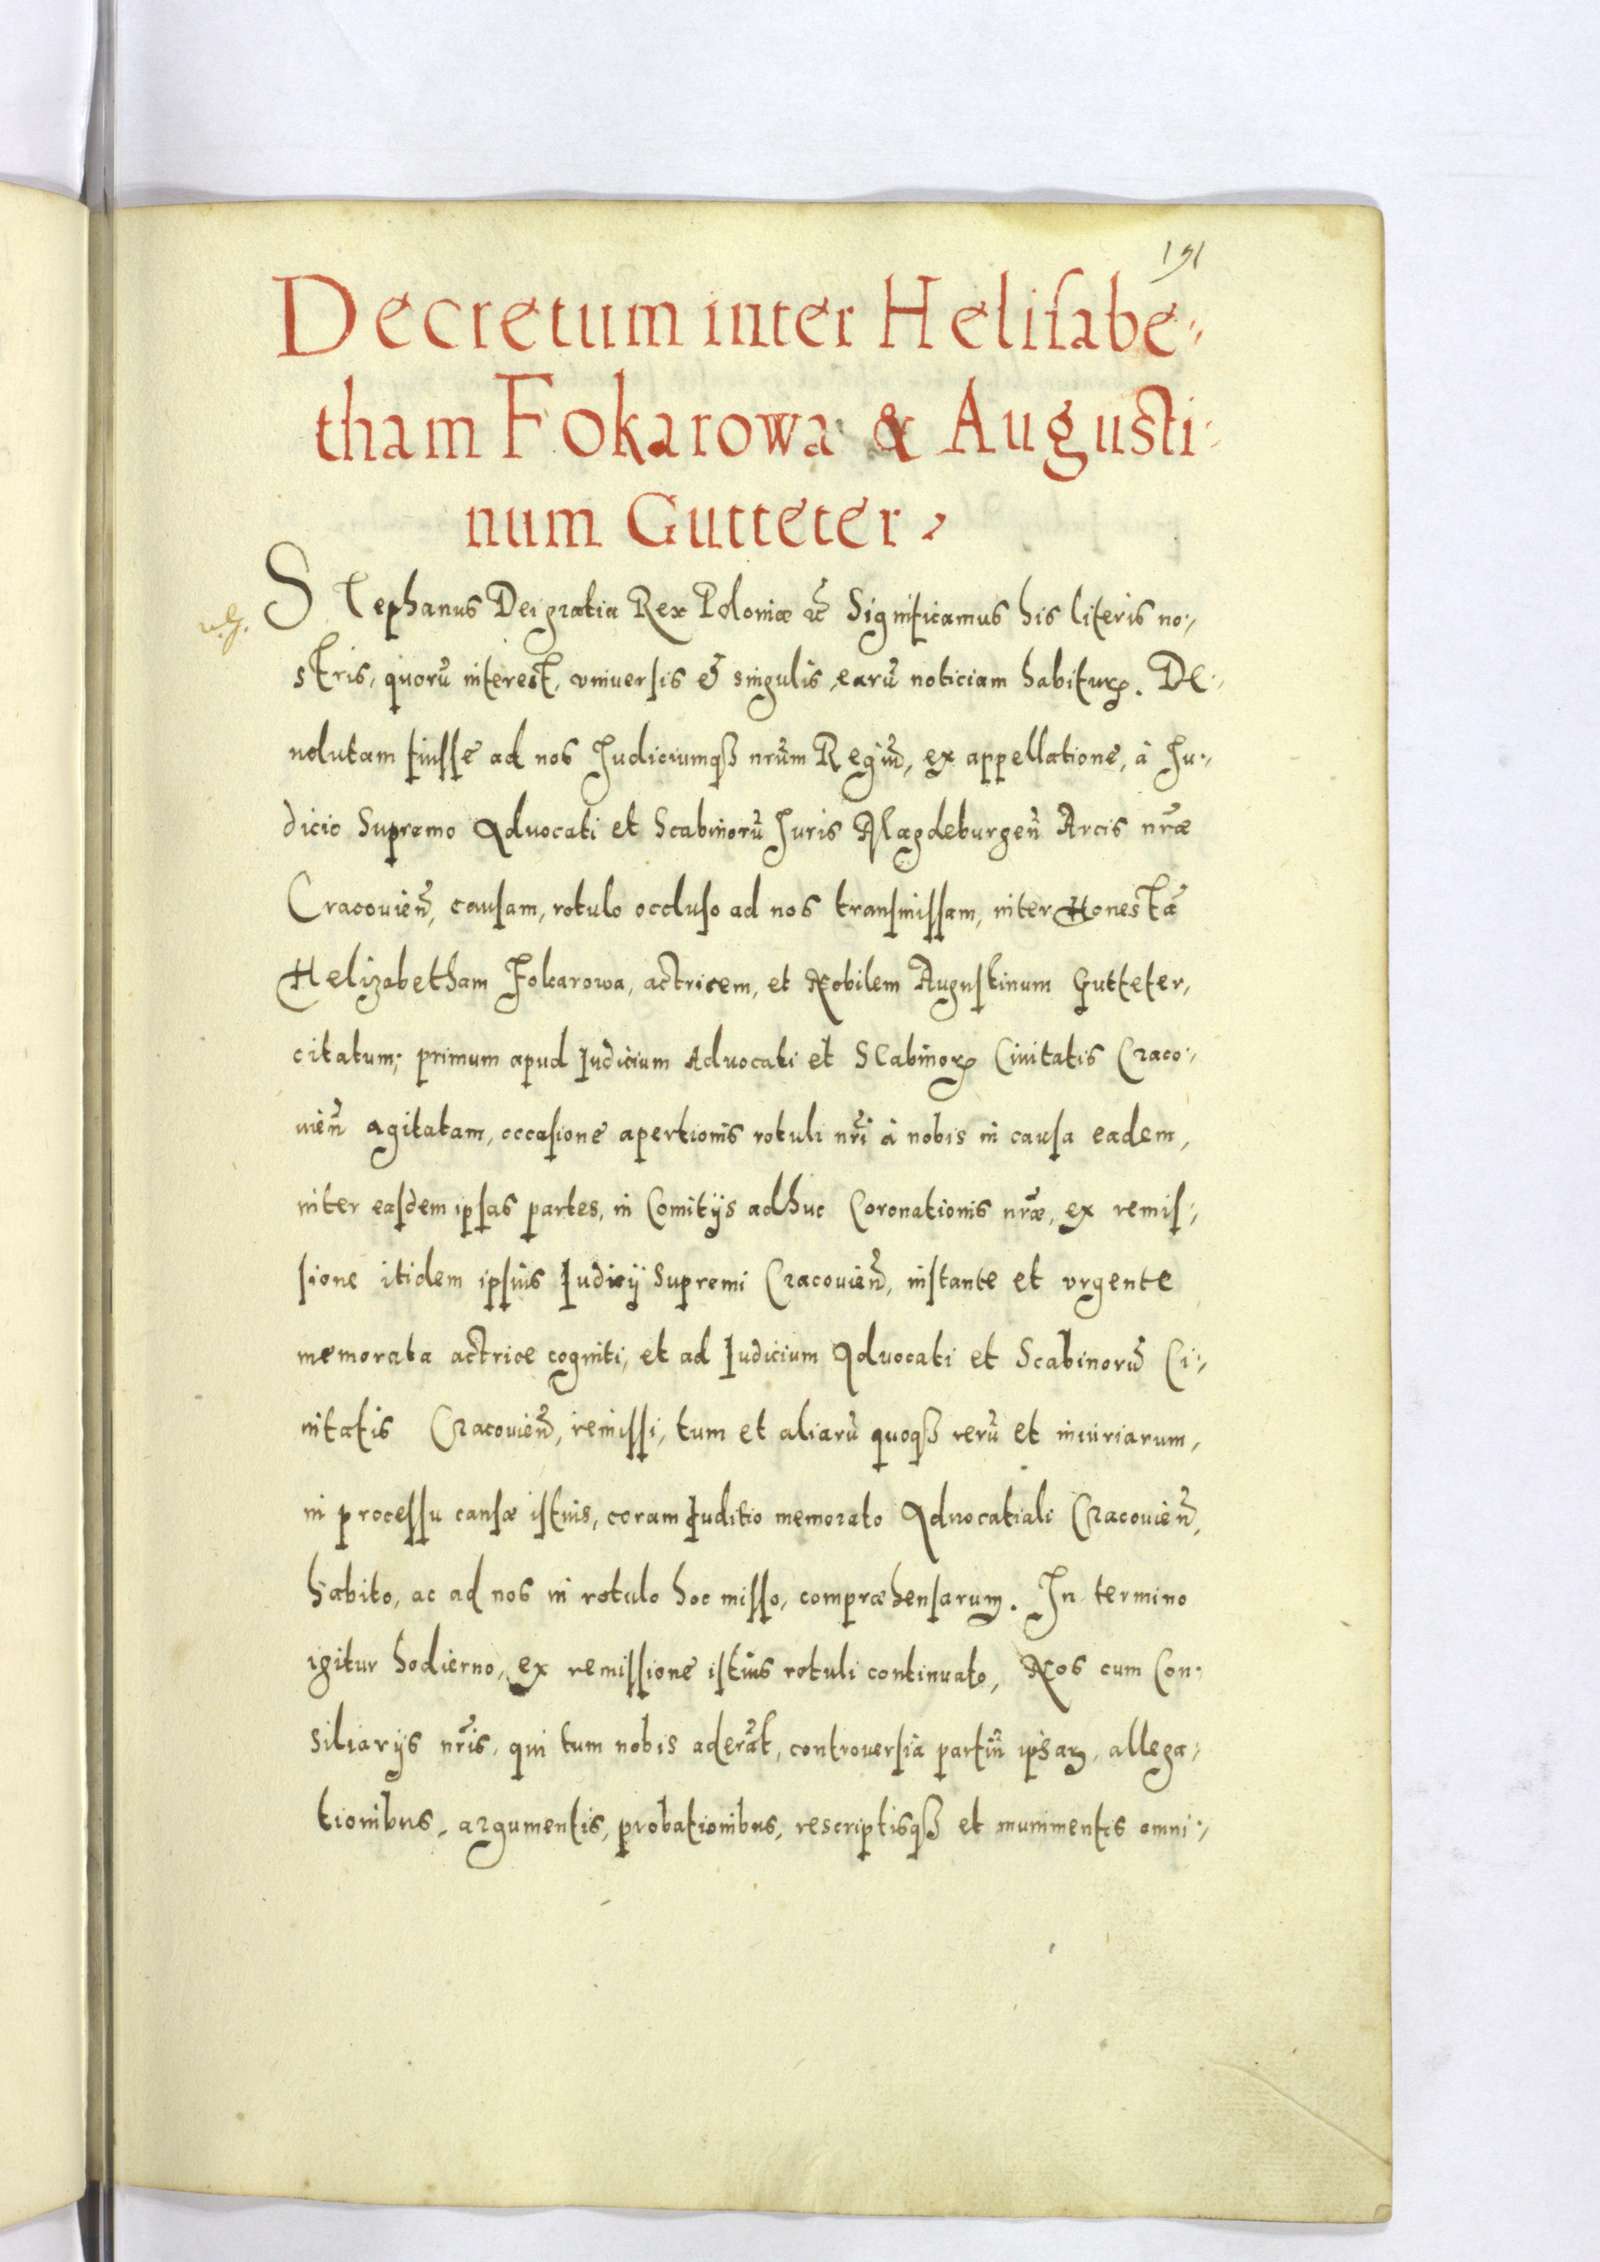 191
Decretum inter Helisabe-
tham Fokarowa & Augusti-
num Gutteter
Stephanus Dei gratia Rex Poloniæ &c̃ Significamus his literis no-
stris, quorũ interest, vniuersis & singulis, earũ noticiam habiturꝝ. De-
uolutam fuisse ad nos Iudiciumqꝫ nr̃um Regiũ, ex appellatione, à Iu-
dicio Supremo Aduocati et Scabinorũ Iuris Magdeburgeñ Arcis nr̃æ
Cracouieñ, causam, rotulo occluso ad nos transmissam, inter Honestã
Helizabetham Fokarowa, actricem, et Nobilem Augustinum Gutteter,
citatum; primum apud Iudicium Aduocati et Scabinorꝝ Ciuitatis Craco-
uieñ agitatam, occasione apertionis rotuli nr̃i à nobis in causa eadem,
inter easdem ipsas partes, in Comitijs adhuc Coronationis nr̃æ, ex remis-
sione itidem ipsius Iudicij Supremi Cracouieñ, instante et vrgente
memorata actrice cogniti, et ad Iudicium Aduocati et Scabinorũ Ci-
uitatis Cracouieñ, remissi, tum et aliarũ quoqꝫ rerũ et iniuriarum,
in processu causæ istius, coram Iuditio memorato Aduocatiali Cracouieñ,
habito, ac ad nos in rotulo hoc misso, compræhensarum. In termino
igitur hodierno, ex remissione istius rotuli continuato, Nos cum Con-
siliarijs nr̃is, qui tum nobis aderãt, controuersia partiũ ipsaꝝ, allega-
tionibus, argumentis, probationibus, rescriptisqꝫ et munimentis omni-